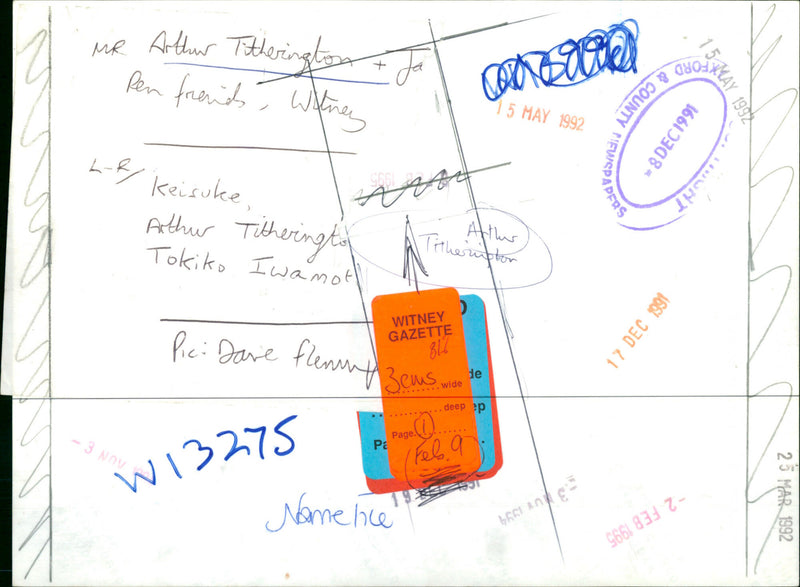 MR Arthur Titherington + Ja
Pen friends, Witney
L-R/
Keisuke,
Arthur Titheringto
Tokiko Iwamot
Pic: Dave Flemm
W13275
Name tice
Arthur
Titherington
WITNEY
GAZETTE
816
3cms wide
deep
Page. 1
Feb. 9
de
ep
Pa
15 MAY 1992
15 MAY 1992
OXFORD & COUNTY NEWSPAPERS
- 8 DEC 1991
17 DEC 1991
23 MAR 1992
- 2 FEB 1995
- 3 NOV 1994
- 3 NOV
19
1995